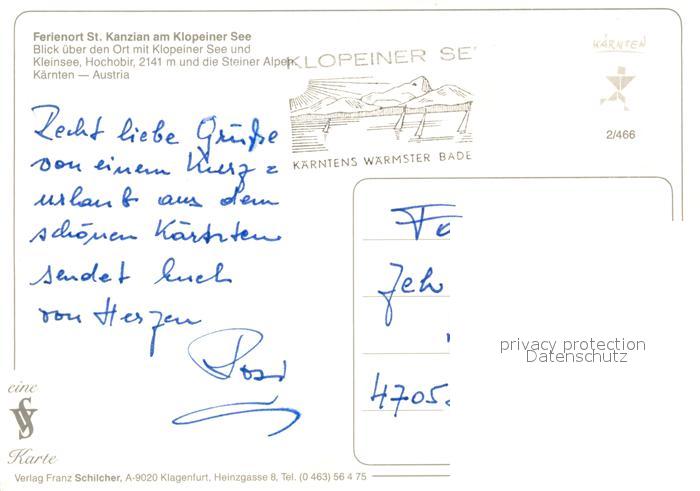 Ferienort St. Kanzian am Klopeiner See
Blick über den Ort mit Klopeiner See und
Kleinsee, Hochobir, 2141 m und die Steiner Alpen
Kärnten — Austria
KLOPEINER SE
KÄRNTENS WÄRMSTER BADE
KÄRNTEN
2/466
Recht liebe Grüße
von einem Kurz=
urlaub aus dem
schönen Kärnten
sendet Euch
von Herzen
Rosi
Fa
Jeh
4705
privacy protection
Datenschutz
eine
VS
Karte
Verlag Franz Schilcher, A-9020 Klagenfurt, Heinzgasse 8, Tel. (0 463) 56 4 75